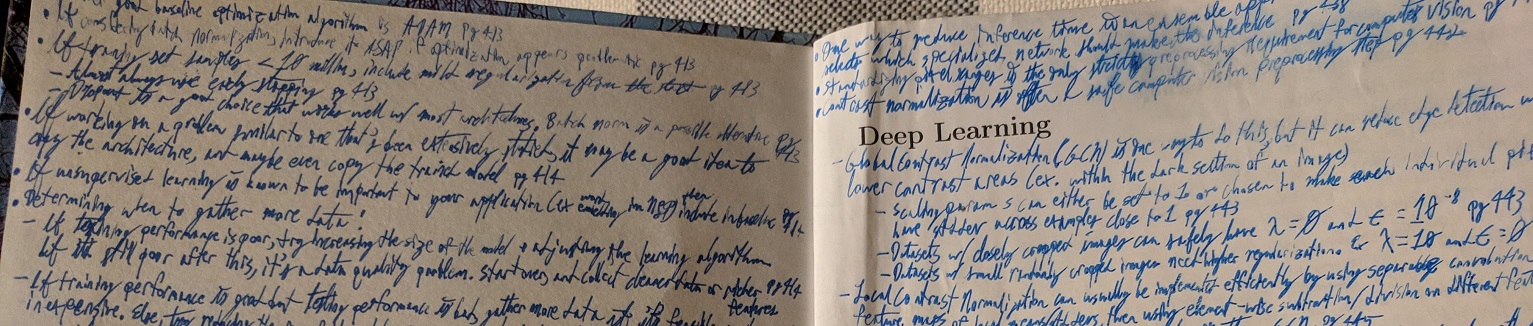 good baseline optimization algorithm is ADAM pg 413
• If considering batch normalization, introduce it ASAP if optimization appears problematic pg 413
• If training set samples < 10 million, include mild regularization from the start pg 413
- Almost always use early stopping pg 413
- Dropout is a good choice that works well w/ most architectures. Batch norm is a possible alternative pg 413
• If working on a problem similar to one that's been extensively studied, it may be a good idea to
copy the architecture, and maybe even copy the trained model pg 414
• If unsupervised learning is known to be important to your application (ex word embedding in NLP) then include in baseline pg 414
• Determining when to gather more data:
- If training performance is poor, try increasing the size of the model + adjusting the learning algorithm
If it's still poor after this, it's a data quality problem. Start over and collect cleaner data or richer features pg 414
- If training performance is good but testing performance is bad, gather more data if it's feasible
inexpensive. Else, try reducing the
• One way to reduce inference time to one ensemble
selects which specialized network should make the inference pg 438
• Standardizing pixel ranges is the only strictly preprocessing requirement for computer vision pg
• Contrast normalization is often a safe computer vision preprocessing step pg 442
Deep Learning
- Global Contrast Normalization (GCN) is one way to do this, but it can reduce edge detection
lower contrast areas (ex. within the dark section of an image)
- Scaling param s can either be set to 1 or chosen to make each individual
have stddev across examples close to 1 pg 443
- Datasets w/ closely cropped images can safely have λ=0 and ε=10⁻⁸ pg 443
- Datasets w/ small randomly cropped images need higher regularization. Ex λ=10 and ε=0
- Local Contrast Normalization can usually be implemented efficiently by using separable convolution
feature maps of local means/stddevs, then using element-wise subtraction/division on different